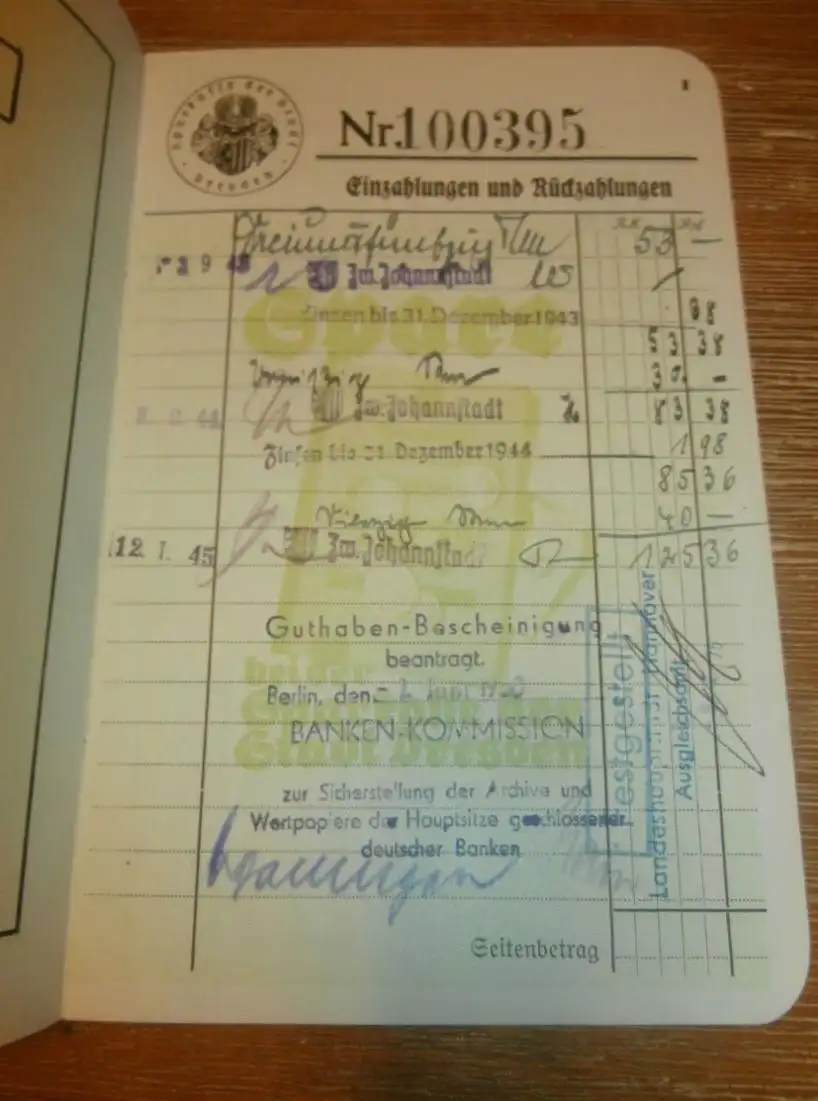 I
Sparkasse der Stadt Dresden
Nr. 100395
Einzahlungen und Rückzahlungen
Dreiundfünfzig RM 53 —
9 43 Zw. Johannstadt
Zinsen bis 31. Dezember 1943 38
53 38
30 —
44 Zw. Johannstadt 83 38
Zinsen bis 31. Dezember 1944 1 98
85 36
Vierzig 40 —
12. 1. 45 Zw. Johannstadt 125 36
Spare
bei der
Stadt Dresden
Guthaben-Bescheinigung
beantragt.
Berlin, den
BANKEN-KOMMISSION
zur Sicherstellung der Archive und
Wertpapiere der Hauptsitze geschlossener
deutscher Banken
Festgestellt
Landeshauptstadt Hannover
Ausgleichsamt
Seitenbetrag